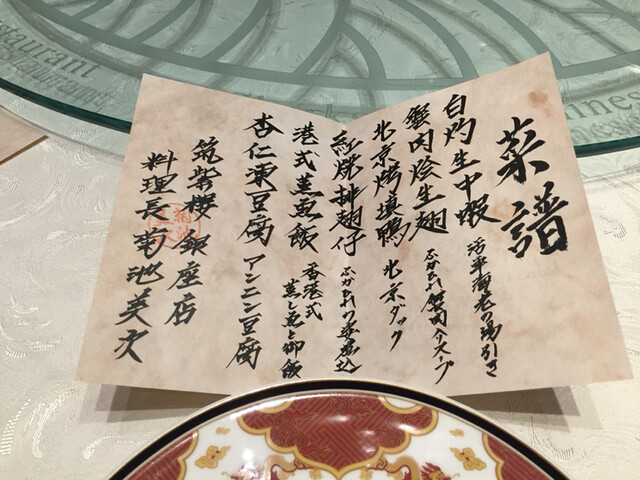 菜譜
白灼生中蝦
活車海老の湯引き
蟹肉燴生翅
ふかひれ蟹肉入スープ
北京烤填鴨
北京ダック
紅焼排翅仔
ふかひれの姿煮込
港式蒸魚飯
香港式
蒸し魚と御飯
杏仁凍豆腐
アンニン豆腐
筑紫樓銀座店
料理長菊池美次
staurant